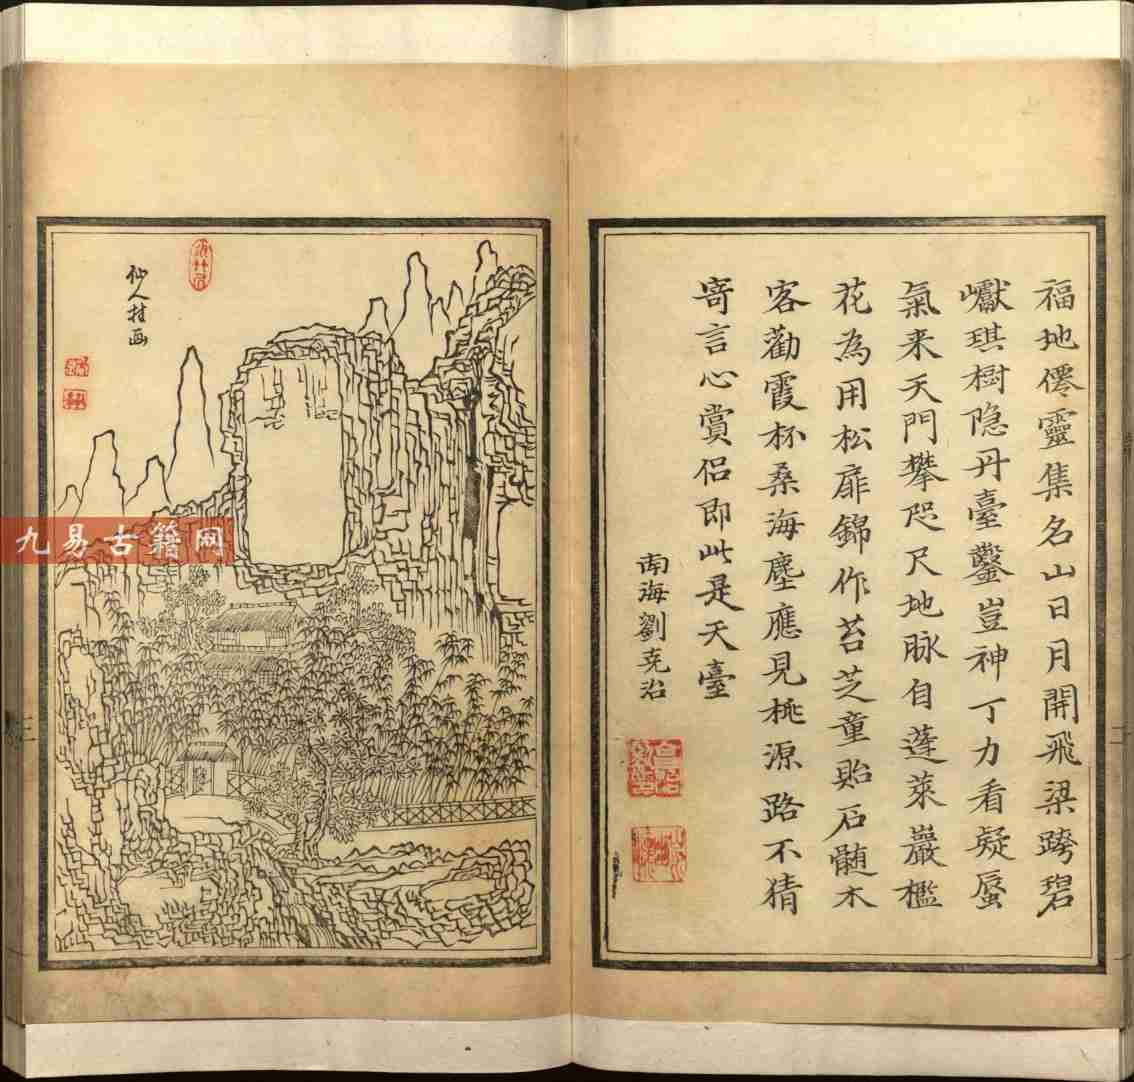 福地僊靈集名山日月開飛梁跨碧
巘琪樹隐丹臺鑿豈神丁力看疑蜃
氣来天門攀咫尺地脉自蓬萊巖檻
花為用松扉錦作苔芝童貽石髓木
客勸霞杯桑海塵應見桃源路不猜
寄言心賞侣即此是天臺
南海劉克治
仙人挂画
九易古籍网